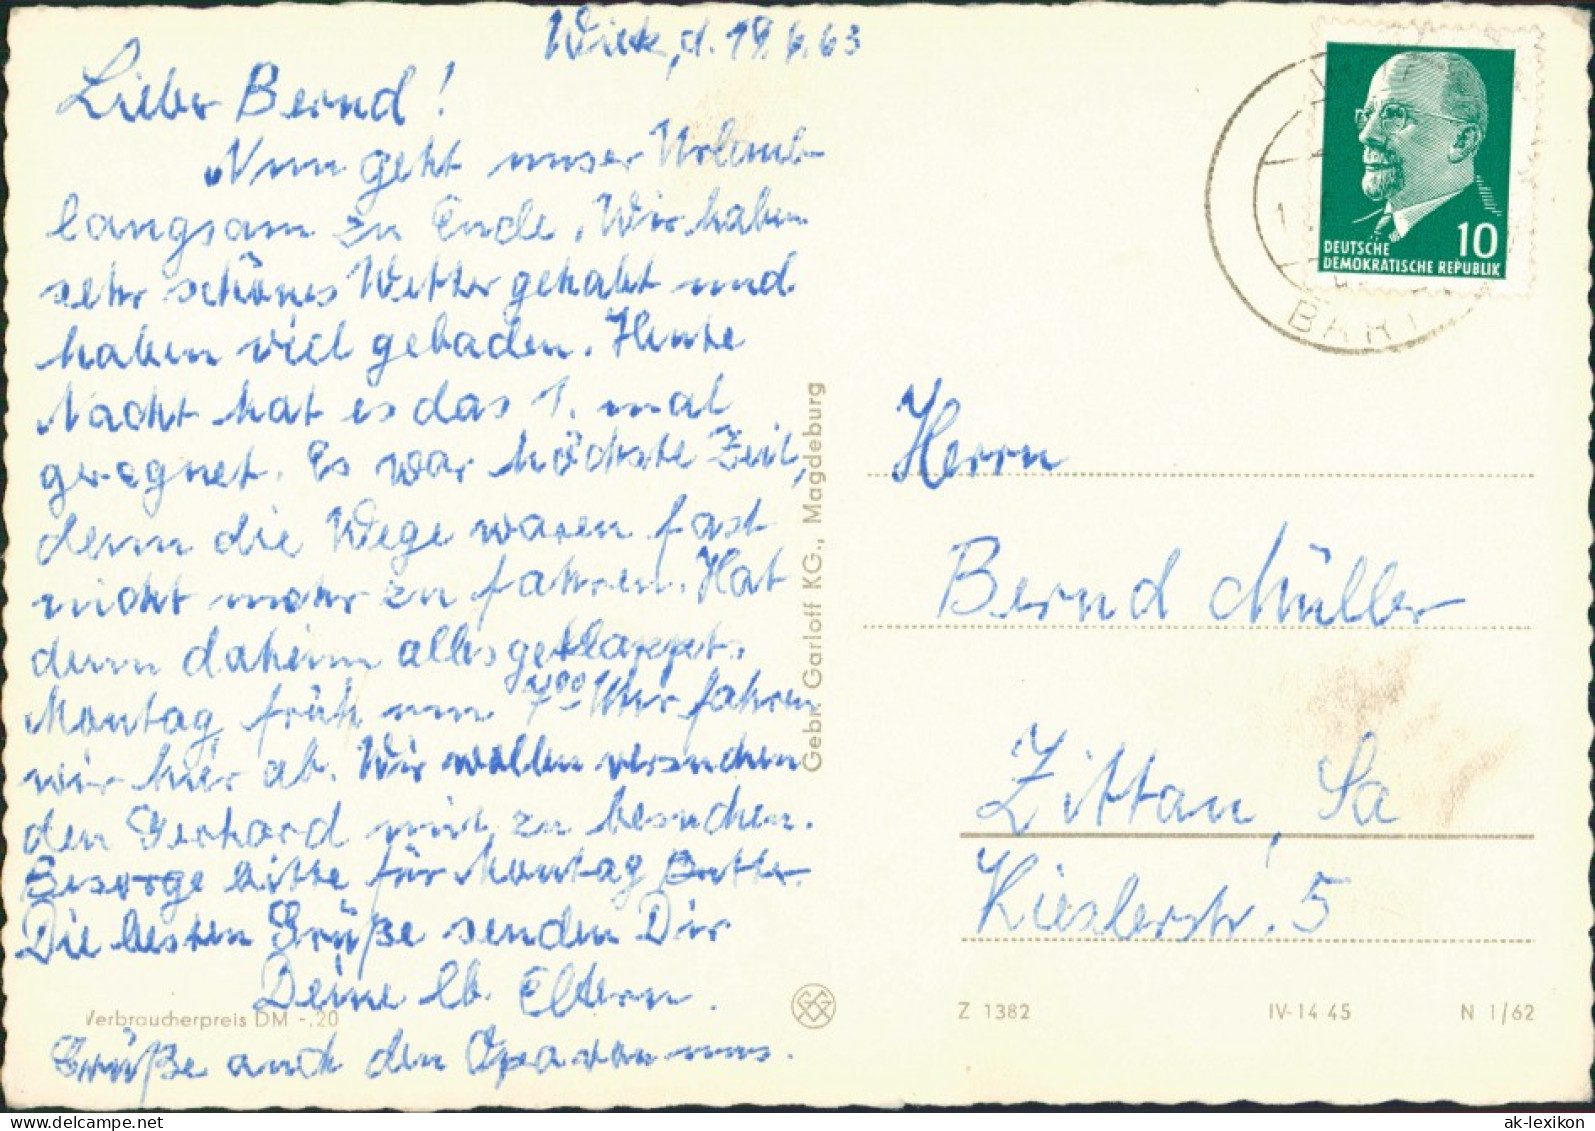 Wiek, d. 19.6.63
Lieber Bernd!
Nun geht unser Urlaub
langsam zu Ende. Wir haben
sehr schönes Wetter gehabt und
haben viel gebaden. Heute
Nacht hat es das 1. mal
geregnet. Es war höchste Zeit,
denn die Wege waren fast
nicht mehr zu fahren. Hat
denn daheim alles geklappt.
Montag früh um 7⁰⁰ Uhr fahren
wir hier ab. Wir wollen versuchen
den Gerhard mit zu besuchen.
Besorge bitte für Montag Butter.
Die besten Grüße senden Dir
Deine lb. Eltern.
Grüße auch den Opa von uns.
Verbraucherpreis DM -,20
Gebr. Garloff KG., Magdeburg
DEUTSCHE
DEMOKRATISCHE REPUBLIK
10
BART
Herrn
Bernd Müller
Zittau, Sa
Kieslerstr. 5
Z 1382
IV-14 45
N 1/62
ak-lexikon.com